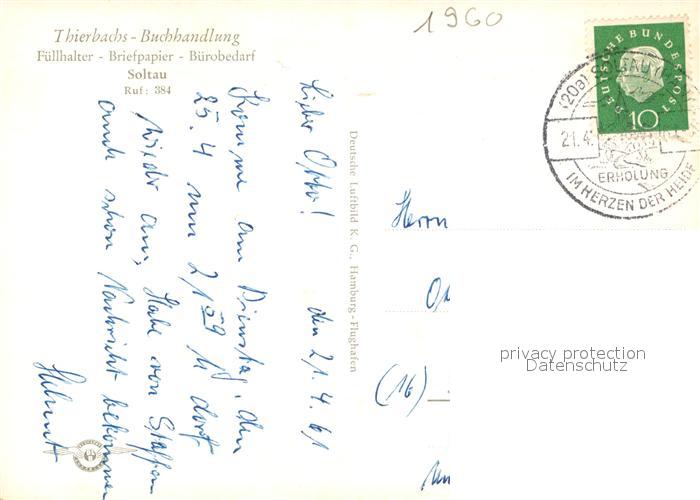 1960
Thierbachs - Buchhandlung
Füllhalter - Briefpapier - Bürobedarf
Soltau
Ruf: 384
DEUTSCHE BUNDESPOST
10
(20a) SOLTAU
21.4.
ERHOLUNG
IM HERZEN DER HEIDE
Deutsche Luftbild K. G., Hamburg-Flughafen
den 21. 4. 61
Lieber Otto!
Komme am Dienstag, den
25. 4 um 21 59 h dort
wieder an, Habe von Staffen
auch schon Nachricht bekommen
Helmut
Herrn
(16)
privacy protection
Datenschutz